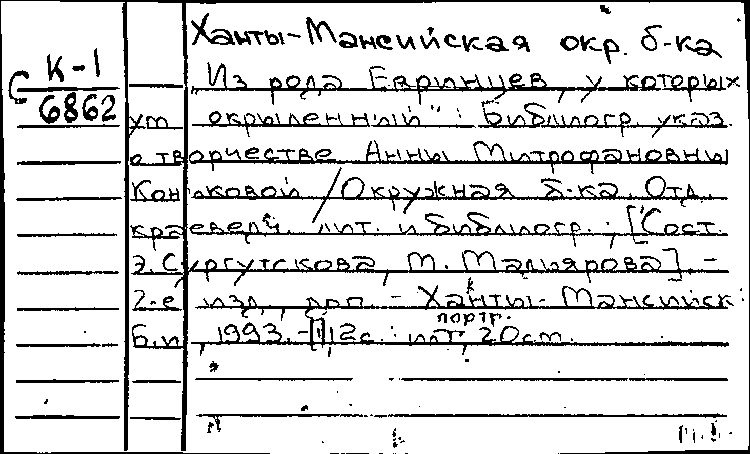 Ханты-Мансийская окр. б-ка
С К-1
6862
„Из рода Евринцев, у которых
ум окрыленный": Библиогр. указ.
о творчестве Анны Митрофановны
Коньковой / Окружная б-ка. Отд.
краевед. лит. и библиогр.; [Сост.
Э. Сургутскова, М. Мадьярова]. -
2-е изд., доп. - Ханты-Мансийск:
Б.и., 1993. - 12с.: портр. 20см.